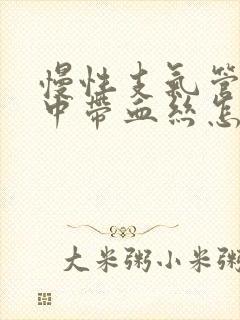 慢性支氣管
中帶血絲怎
大米粥小米粥